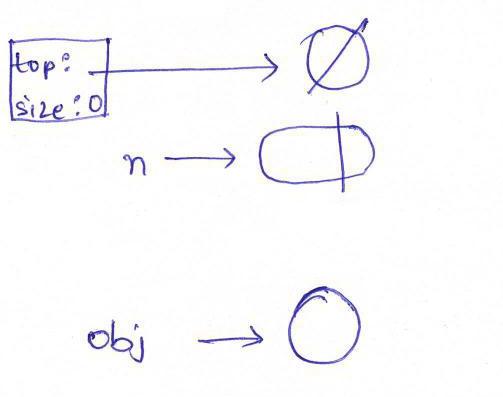 top:
size:0
n
obj